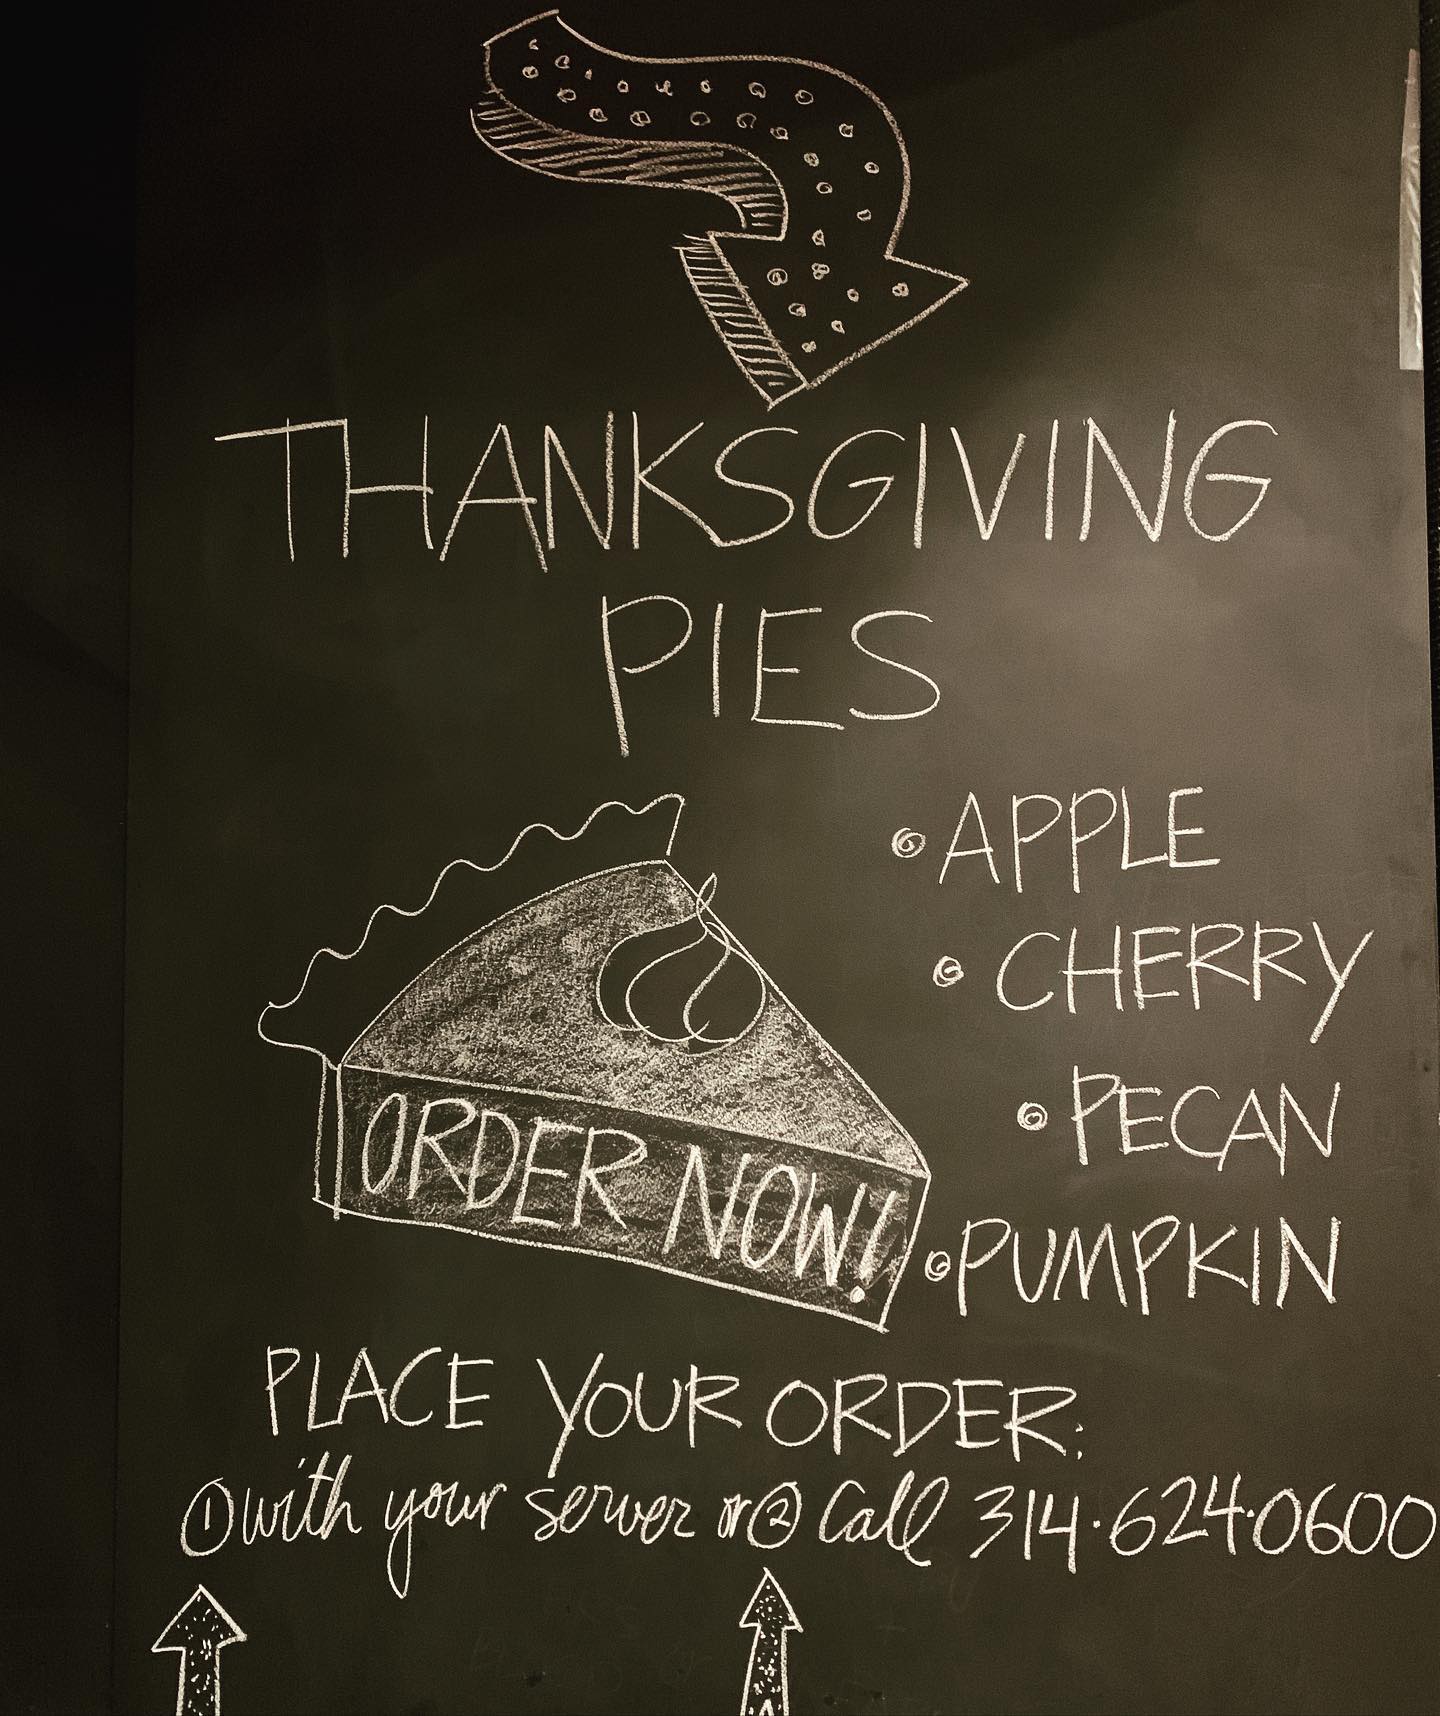 THANKSGIVING
PIES
APPLE
CHERRY
PECAN
PUMPKIN
ORDER NOW!
PLACE YOUR ORDER:
① with your server or ② Call 314·624·0600